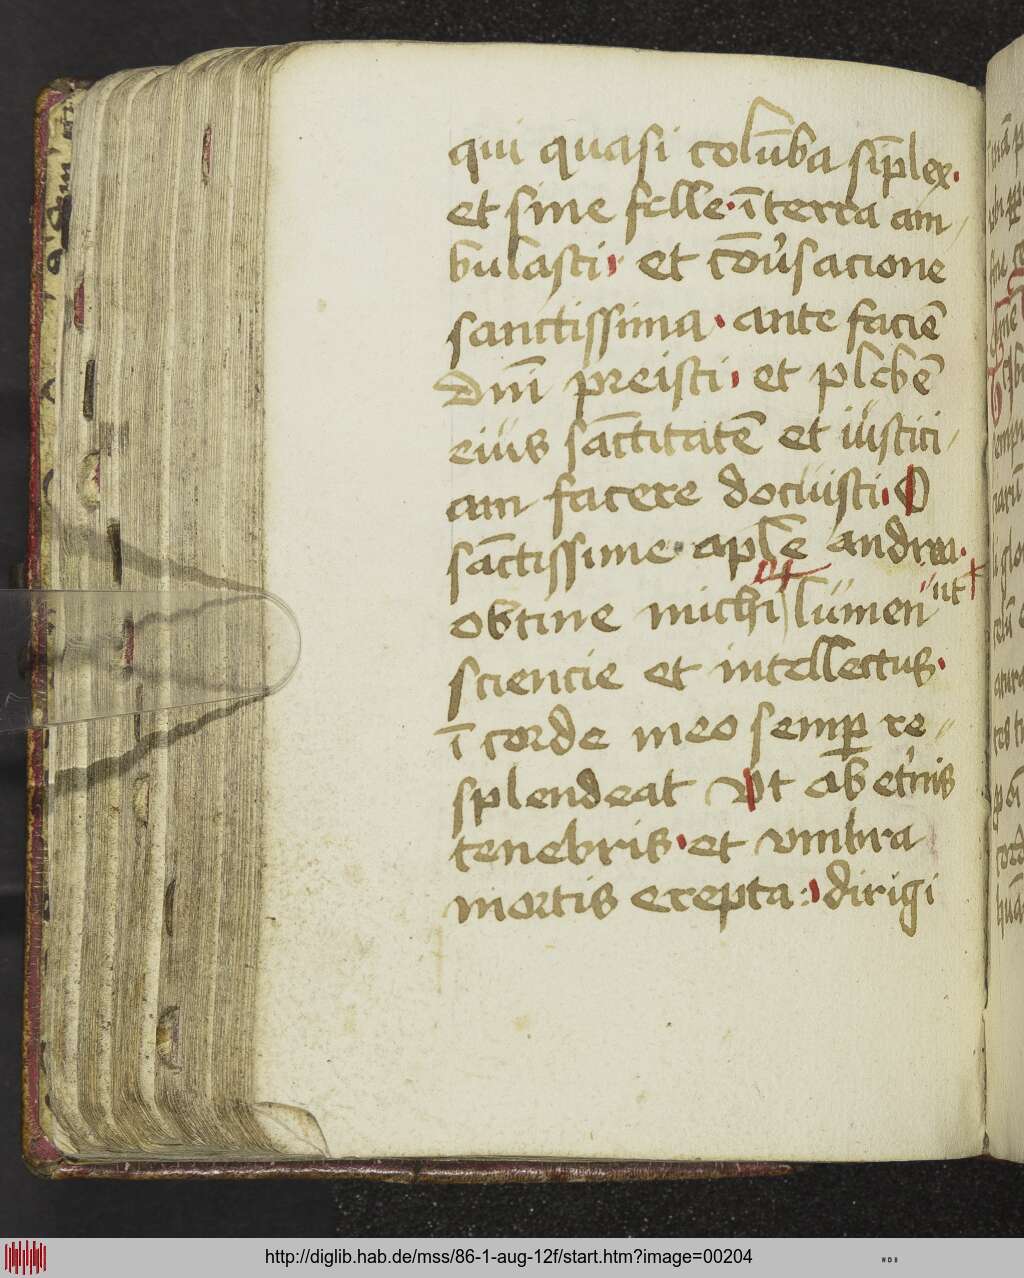 qui quasi colūba sīplex.
et sine felle. ī terra am
bulasti. et cōūsacione
sanctissima. ante faciē
dnī preisti. et plebē
eius sāctitatē et iusticí
am facere docuisti. O
sāctissime aplē andrea.
et ut
obtine michi lumen
sciencie et intellectus.
ī corde meo semp re
splendeat Vt ab et'nis
tenebris. et vmbra
mortis erepta: dirigi
http://diglib.hab.de/mss/86-1-aug-12f/start.htm?image=00204